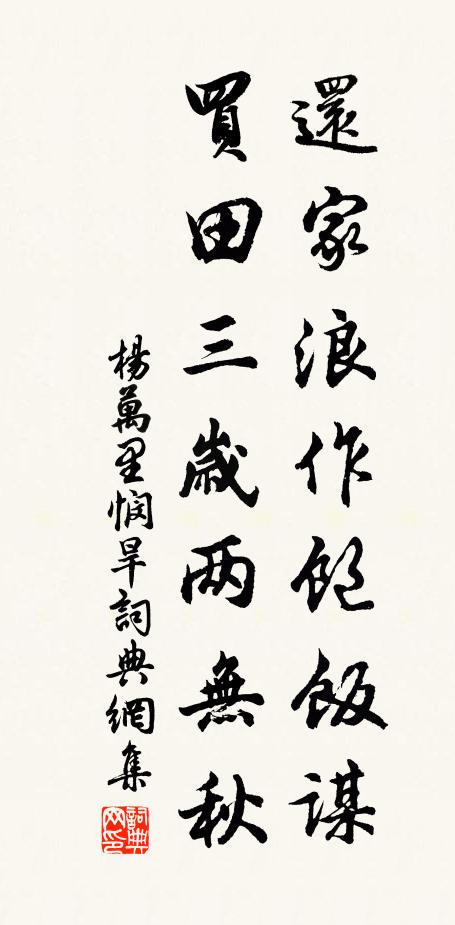 還家浪作飽飯謀
買田三歲两無秋
楊萬里憫旱詞典網集
詞典网印